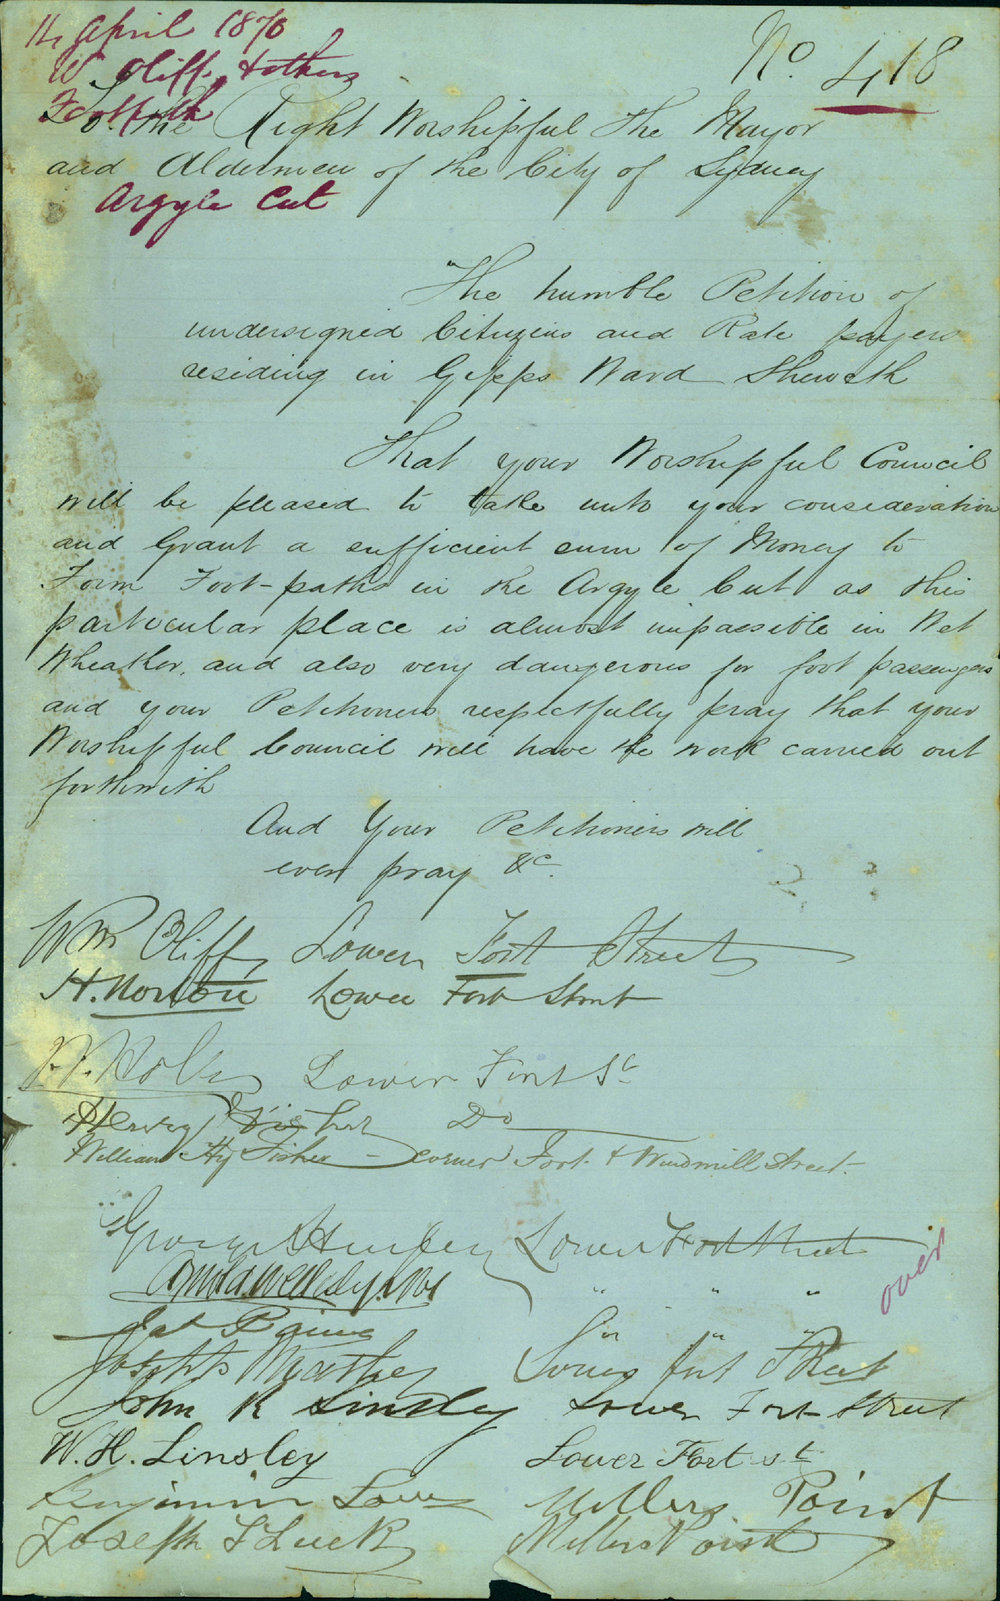 11 April 1870
No. 418
W. Cliff & others
Footpath
To the Right Worshipful The Mayor
and Aldermen of the City of Sydney
Argyle Cut
The humble Petition of
undersigned Cituzens and Rate payers
residing in Gipps Ward Sheweth
That your Worshipful Council
will be pleased to take unto your consideration
and Grant a sufficient sum of Money to
Form Foot-paths in the Argyle Cut as this
particular place is almost impassible in Wet
Wheather, and also very dangerous for foot passengers
and your Petitioners respectfully pray that your
Worshipful Council will have the work carried out
forthwith
And Your Petitioners will
ever pray &c.
Wm Cliff Lower Fort Street
H. Norton Lower Fort Street
Lower Fort St
Henry Do
William Hy Fisher - Corner Fort & Windmill Street.
George Lower Fort Street
" " "
over
" " "
Joseph Lower fort Street
John R Linsley Lower Fort Street
W. H. Linsley Lower Fort st
Benjamin Millers Point
Joseph Millers Point